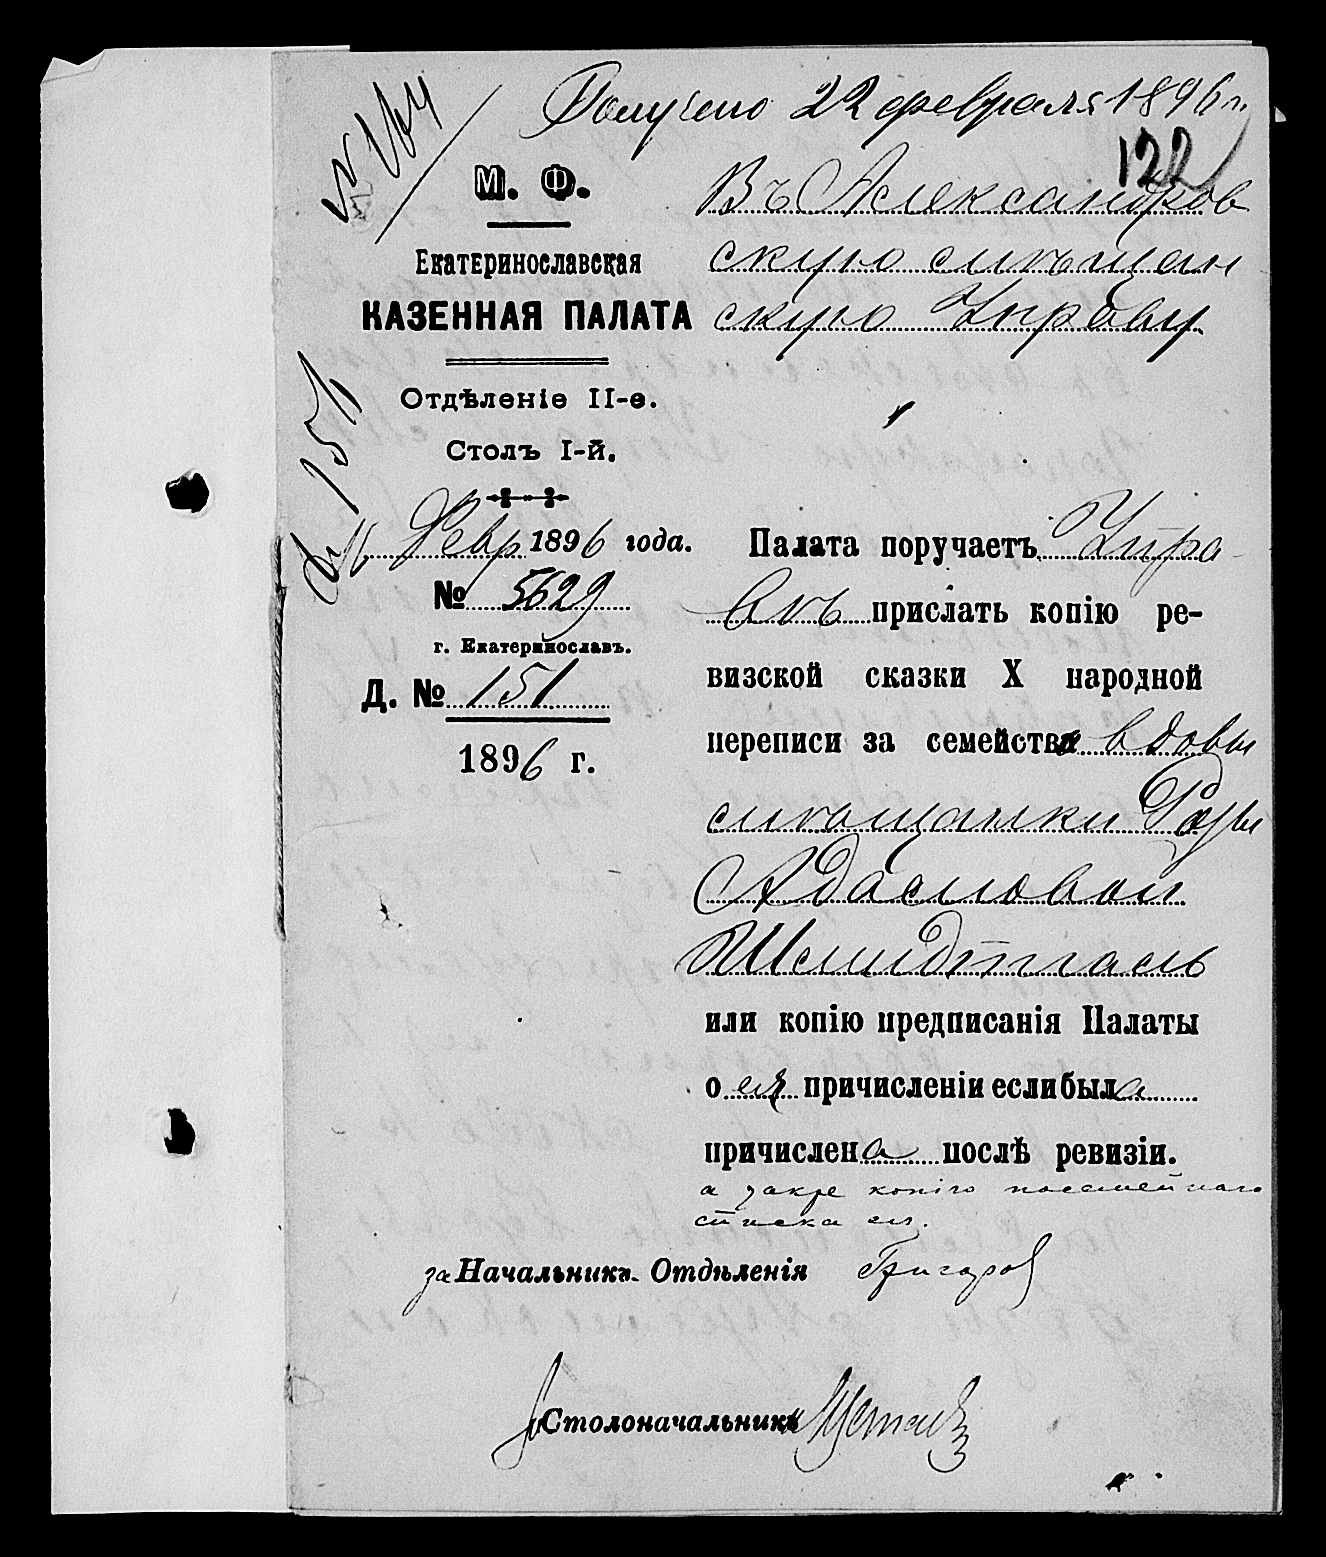 Получено 22 февраля 1896 г.
122
М. Ф.
Екатеринославская
КАЗЕННАЯ ПАЛАТА
Отдѣленіе II-е.
Столъ I-й.
Февр 1896 года.
№ 5629
г. Екатеринославъ.
Д. № 151
1896 г.
№ 151
Въ Александров
скую мѣщан
скую Управу
Палата поручаетъ Упра-
вѣ прислать копію ре-
визской сказки X народной
переписи за семейство вдовы
мѣщанки Розы
Адамовой
Шмидтгаль
или копію предписанія Палаты
о ея причисленіи если была
причислена послѣ ревизіи.
а также копію посемейнаго
списка ея.
за Начальникъ Отдѣленія Григоров
Столоначальникъ